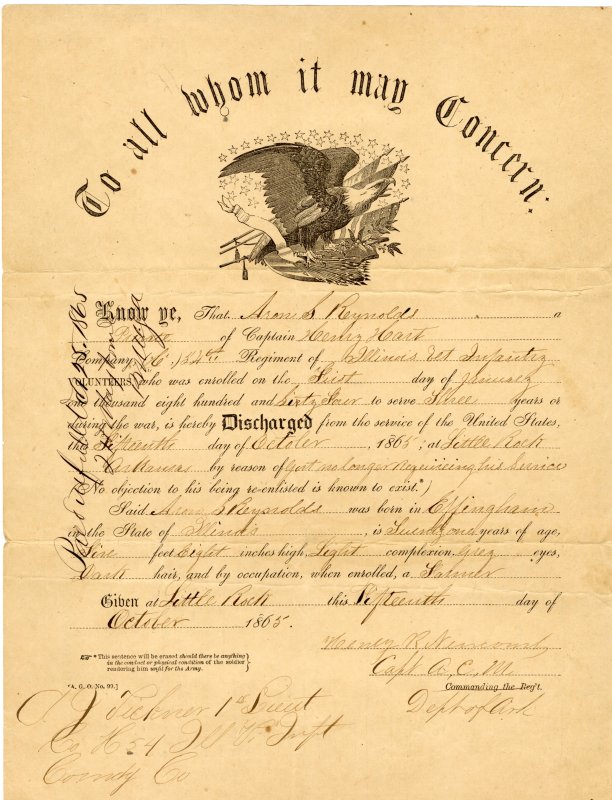 To all whom it may Concern:
Know ye, That Aron S Reynolds a
Private of Captain Henry Hart
Company (H.) 54th Regiment of Illinois Vet Infantry
VOLUNTEERS, who was enrolled on the First day of January
one thousand eight hundred and Sixty Four to serve Three years or
during the war, is hereby Discharged from the service of the United States,
this Fifteenth day of October, 1865, at Little Rock
Arkansas by reason of Govt no longer Requireing his Service
(No objection to his being re-enlisted is known to exist.*)
Said Aron S Reynolds was born in Effingham
in the State of Illinois, is Twenty one years of age,
Five feet Eight inches high, Light complexion, Grey eyes,
Dark hair, and by occupation, when enrolled, a Farmer
Given at Little Rock this Fifteenth day of
October 1865.
Henry R Newcomb
Capt A. C. M.
Commanding the Reg't.
Dept of Ark
* This sentence will be erased should there be anything
in the conduct or physical condition of the soldier
rendering him unfit for the Army.
[A. G. O. No. 99.]
A. J. Tickner 1st Lieut
Co H 54 Ill V Inft
Comdg Co
Paid in full Oct 25. 1865